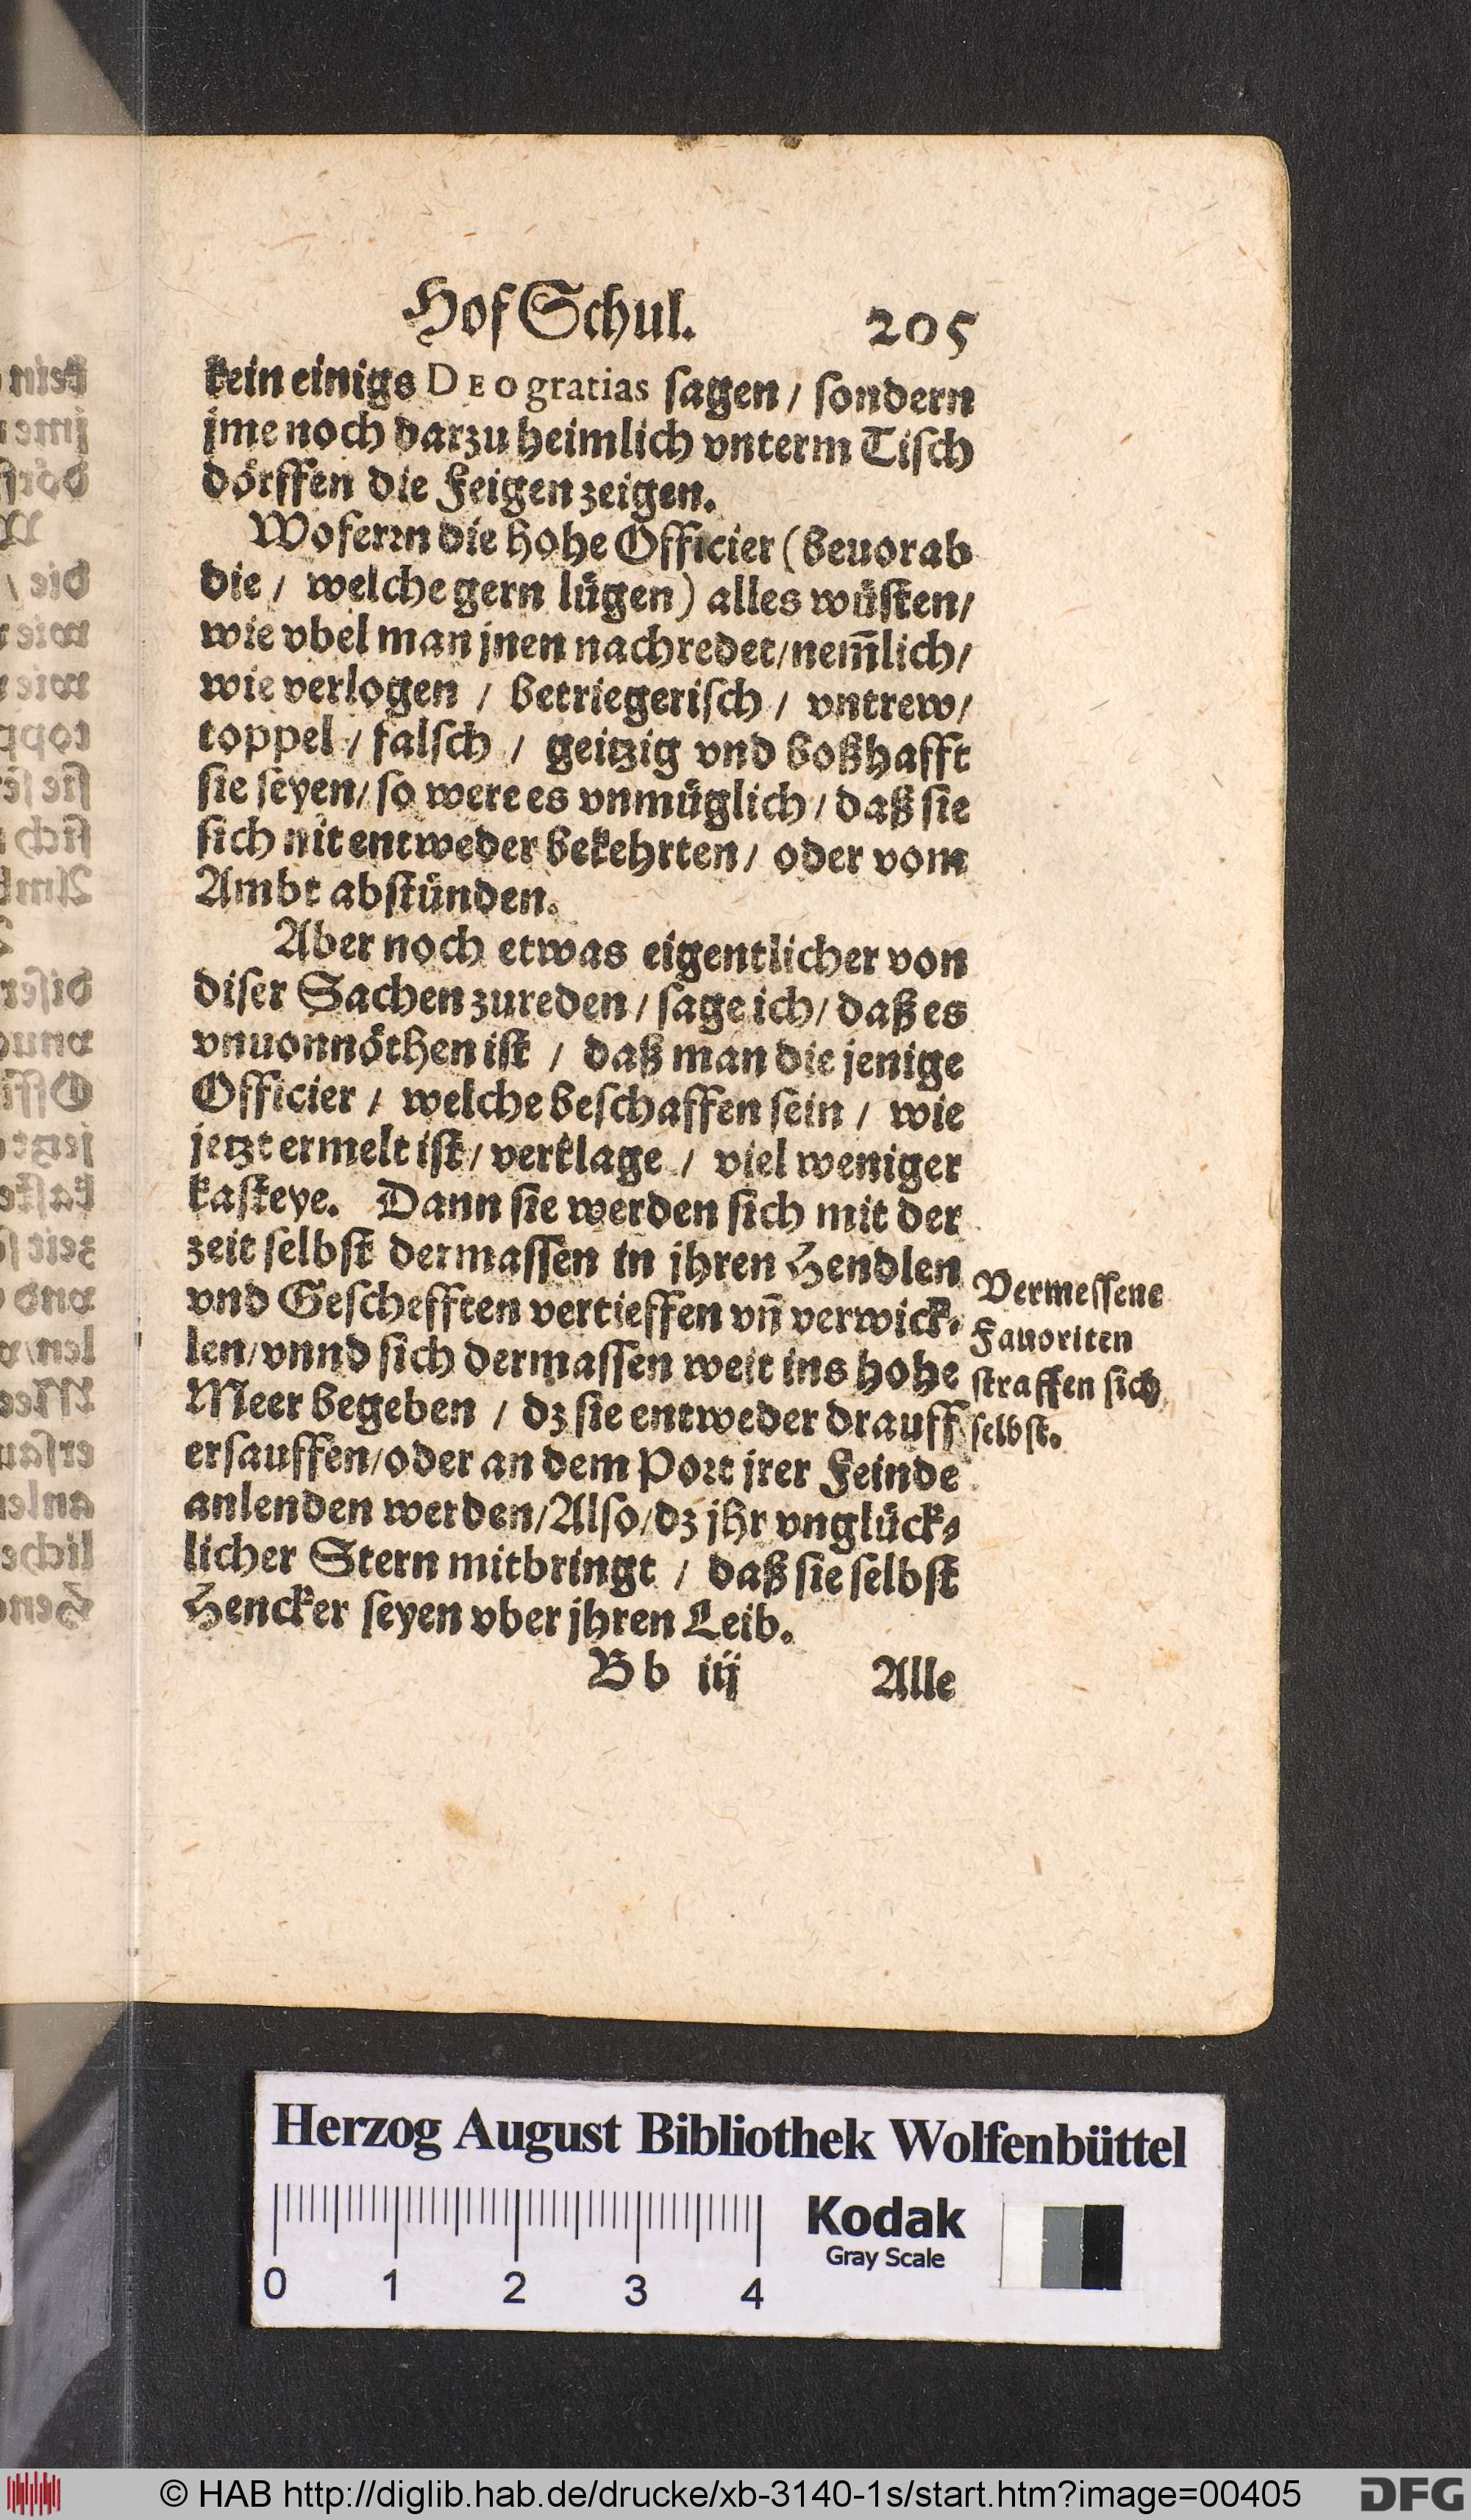 Hof Schul. 205
kein einigs DEO gratias sagen / sondern
jme noch darzu heimlich vnterm Tisch
dörffen die Feigen zeigen.
Wofern die hohe Officier (beuorab
die / welche gern lügen) alles wüsten/
wie vbel man jnen nachredet/nem̄lich/
wie verlogen / betriegerisch / vntrew/
toppel / falsch / geitzig vnd boßhafft
sie seyen/ so were es vnmüglich / daß sie
sich nit entweder bekehrten / oder vom
Ambt abstünden.
Aber noch etwas eigentlicher von
diser Sachen zureden / sage ich / daß es
vnuonnöthen ist / daß man die jenige
Officier / welche beschaffen sein / wie
jetzt ermelt ist / verklage / viel weniger
kasteye. Dann sie werden sich mit der
zeit selbst dermassen in jhren Hendlen
vnd Geschefften vertieffen vn̄ verwick-
len/vnnd sich dermassen weit ins hohe
Meer begeben / dz sie entweder drauff
ersauffen/oder an dem Port jrer Feinde
anlenden werden/Also/dz jhr vnglück-
licher Stern mitbringt / daß sie selbst
Hencker seyen vber jhren Leib.
Vermessene
Fauoriten
straffen sich
selbst.
Bb iij Alle
Herzog August Bibliothek Wolfenbüttel
0 1 2 3 4
Kodak
Gray Scale
© HAB http://diglib.hab.de/drucke/xb-3140-1s/start.htm?image=00405
DFG